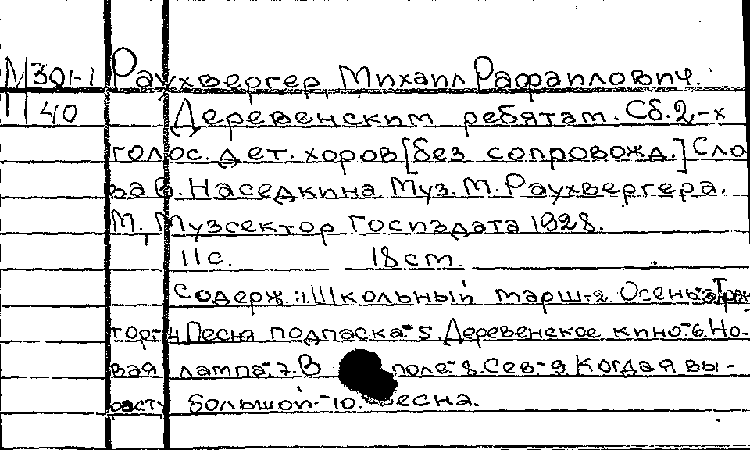 М301-1 Раухвергер, Михаил Рафаилович.
40 Деревенским ребятам. Сб. 2-х
голос. дет. хоров [без сопровожд.] Сло
ва В. Наседкина Муз. М. Раухвергера.
М., Музсектор Госиздата 1928.
11с. 18 cm.
Содерж.: 1. Школьный марш.-2. Осень.-3. Трак
тор.-4. Песня подпаска.-5. Деревенское кино.-6. Но-
вая лампа.-7. В поле.-8. Сев.-9. Когда я вы-
расту большой.-10. Весна.